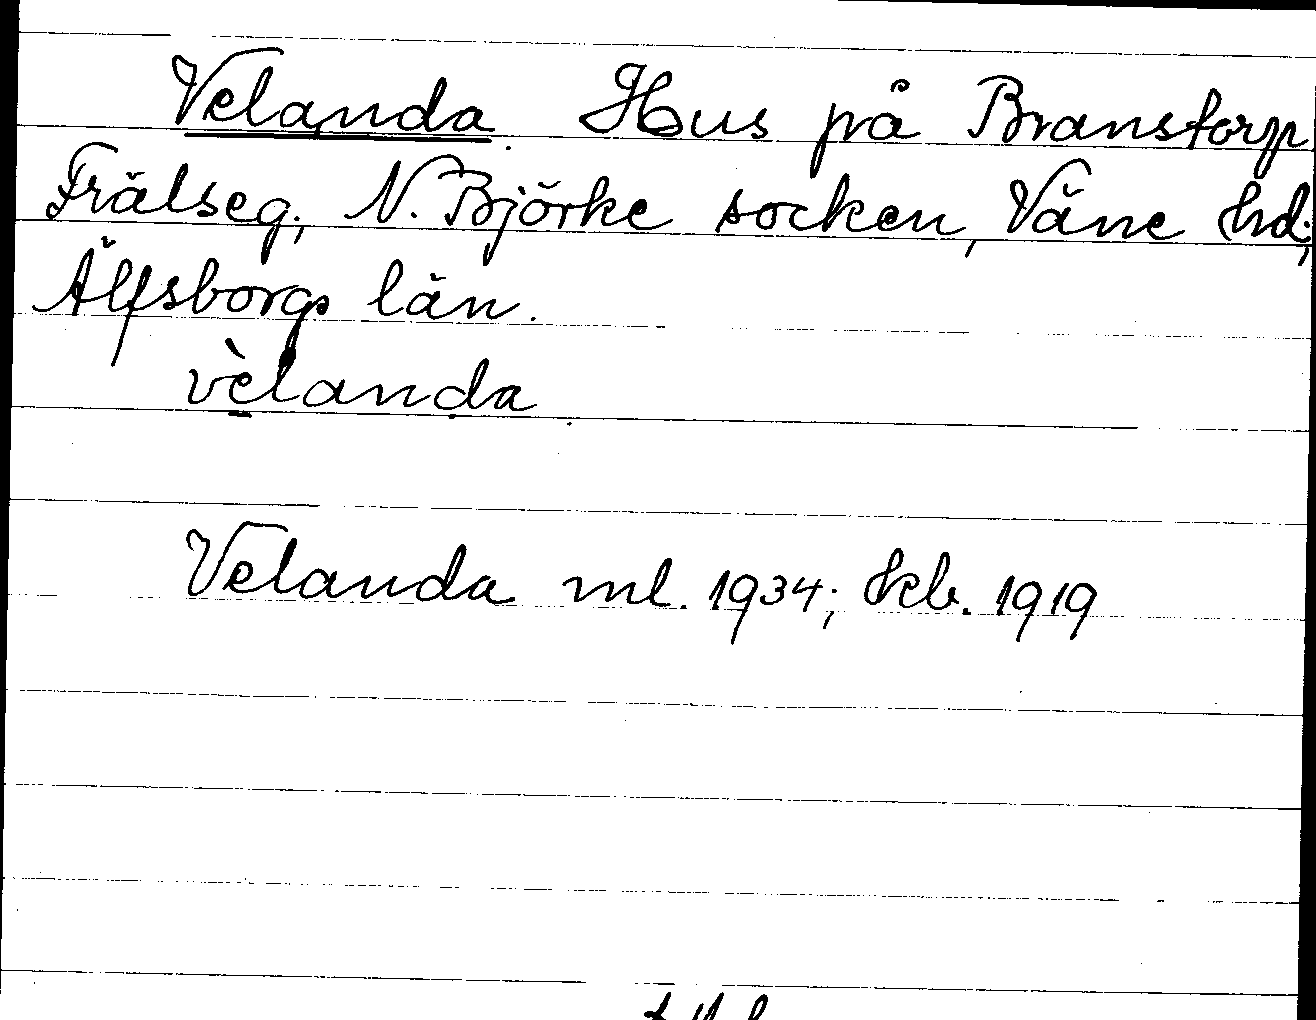 Velanda. Hus på Branstorp
Frälseg., N. Björke socken, Väne hd;
Älfsborgs län.
vèlanda
Velanda ml. 1934; kb. 1919